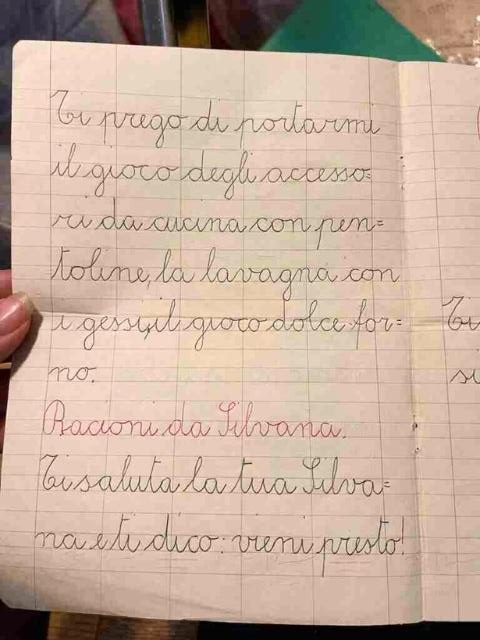 Ti prego di portarmi
il gioco degli accesso=
ri da cucina con pen=
toline, la lavagna con
i gessi, il gioco dolce for=
no.
Bacioni da Silvana.
Ti saluta la tua Silva=
na e ti dico: vieni presto!
Ti
si